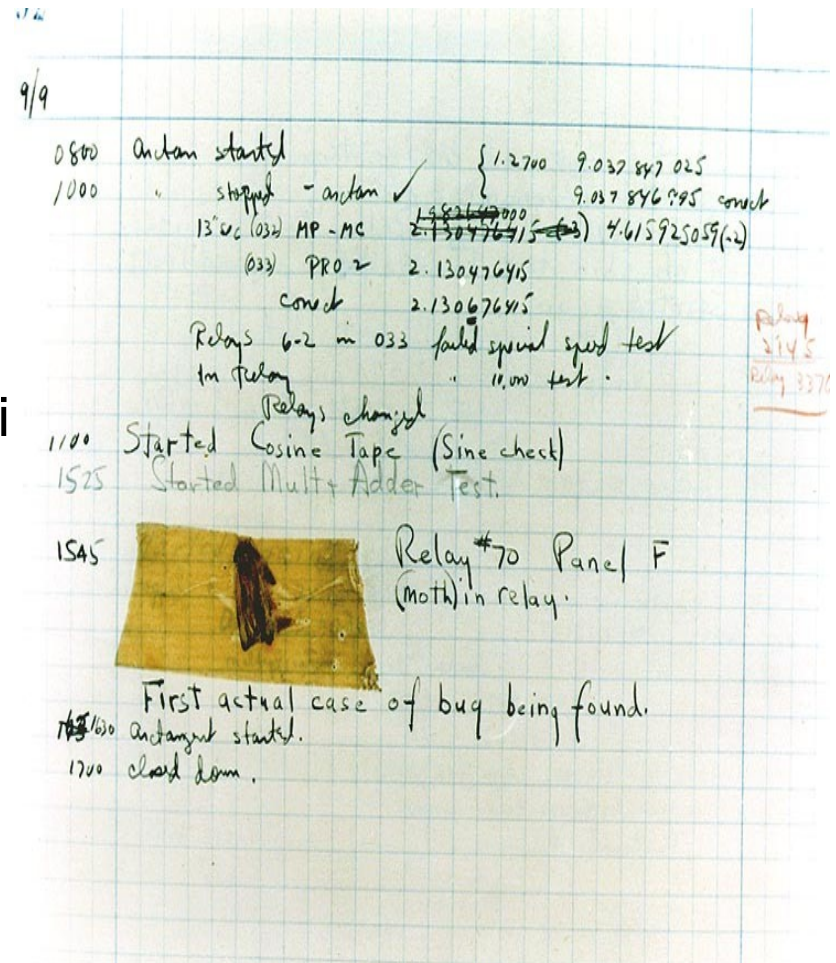 9/9
0800 Antan started { 1.2700 9.037 847 025
1000 " stopped - antan ✓ 9.037 846 995 correct
13"uc (032) MP - MC 2.130476415 (-3) 4.615925059(-2)
(033) PRO 2 2.130476415
correct 2.130676415
Relays 6-2 in 033 failed special speed test
In Relay " 10,000 test .
Relays changed
Relay
2145
Relay 3370
1100 Started Cosine Tape (Sine check)
1525 Started Mult + Adder Test.
1545 Relay #70 Panel F
(moth) in relay.
First actual case of bug being found.
1630 Antangent started.
1700 closed down.
i